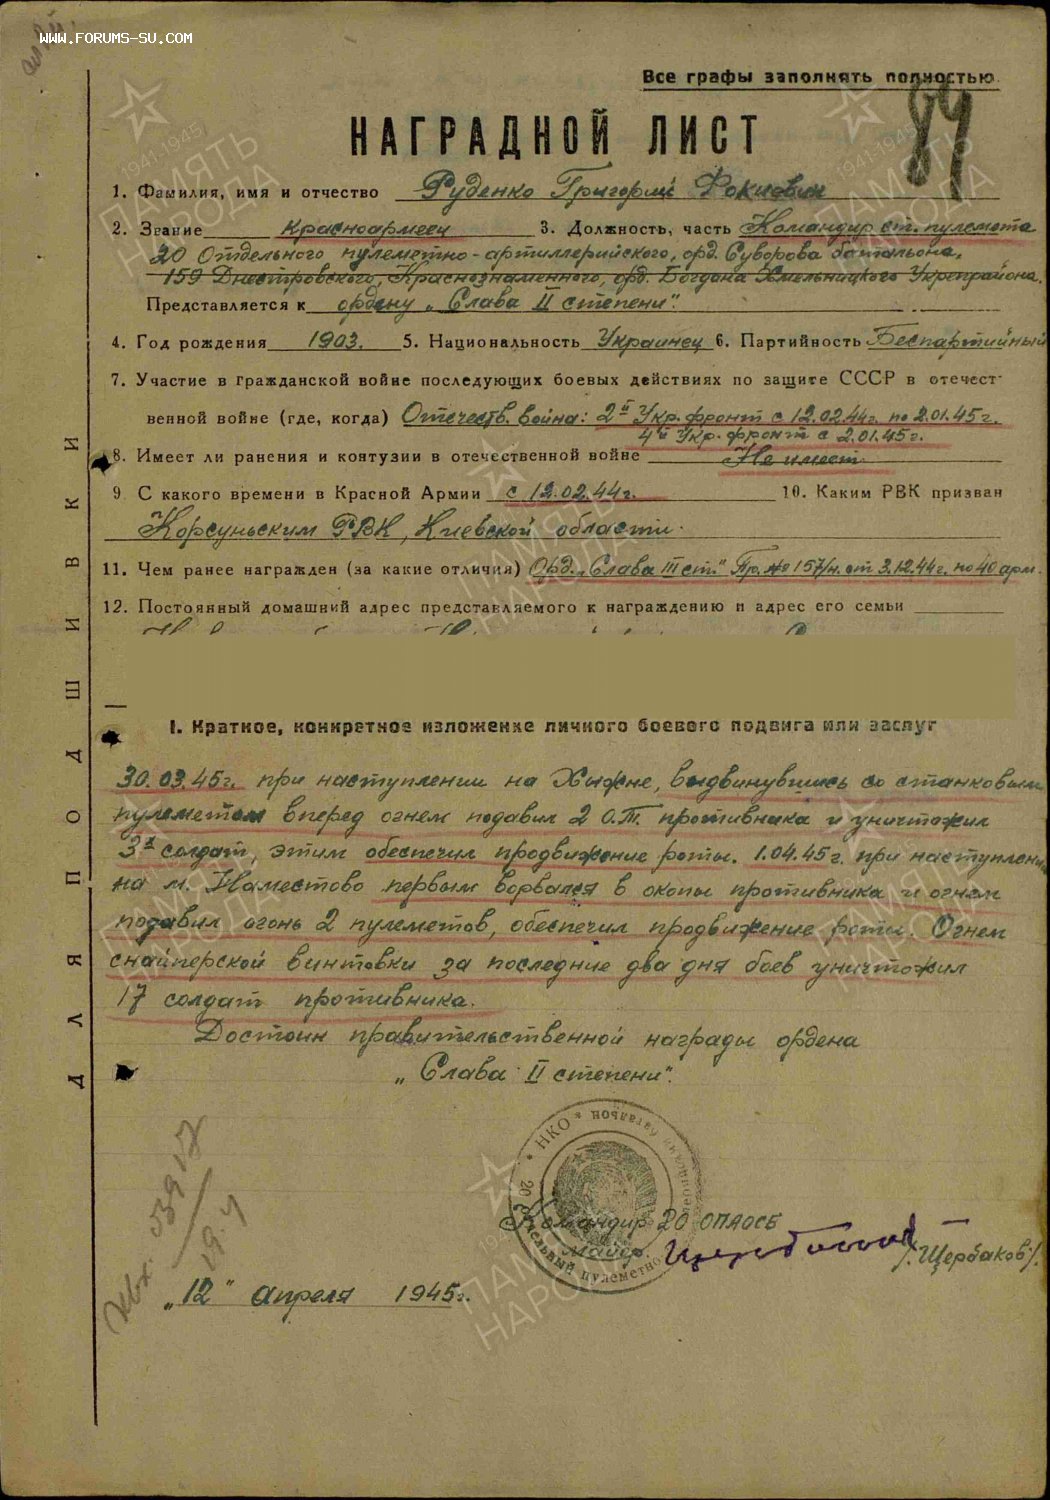 WWW.FORUMS-SU.COM
Все графы заполнять полностью
84
НАГРАДНОЙ ЛИСТ
1. Фамилия, имя и отчество Руденко Григорий Фокиевич
2. Звание Красноармеец 3. Должность, часть Командир ст. пулемета
20 Отдельного пулеметно-артиллерийского, орд. Суворова батальона,
159 Днестровского, Краснознаменного, орд. Богдана Хмельницкого Укрепрайона.
Представляется к ордену „Слава II степени".
4. Год рождения 1903. 5. Национальность Украинец 6. Партийность Беспартийный
7. Участие в гражданской войне последующих боевых действиях по защите СССР в отечест-
венной войне (где, когда) Отечеств. война: 2й Укр. фронт с 12.02.44г. по 2.01.45г.
4й Укр. фронт с 2.01.45г.
8. Имеет ли ранения и контузии в отечественной войне Не имеет
9 С какого времени в Красной Армии с 12.02.44г. 10. Каким РВК призван
Корсуньским РВК, Киевской области.
11. Чем ранее награжден (за какие отличия) Орд. „Слава III ст." Пр. № 157/н. от 3.12.44г. по 40 арм.
12. Постоянный домашний адрес представляемого к награждению и адрес его семьи
I. Краткое, конкретное изложение личного боевого подвига или заслуг
30.03.45г. при наступлении на Хыжне, выдвинувшись со станковым
пулеметом вперед огнем подавил 2 О.Т. противника и уничтожил
3х солдат, этим обеспечил продвижение роты. 1.04.45г. при наступлении
на м. Наместово первым ворвался в окопы противника и огнем
подавил огонь 2 пулеметов, обеспечил продвижение роты. Огнем
снайперской винтовки за последние два дня боев уничтожил
17 солдат противника.
Достоин правительственной награды ордена
„Слава II степени".
Командир 20 ОПАОСБ
майор. /Щербаков/.
„12" апреля 1945г.
ДЛЯ ПОДШИВКИ
НКО * 20 Отдельный пулеметно батальон *
1941-1945
ПАМЯТЬ НАРОДА